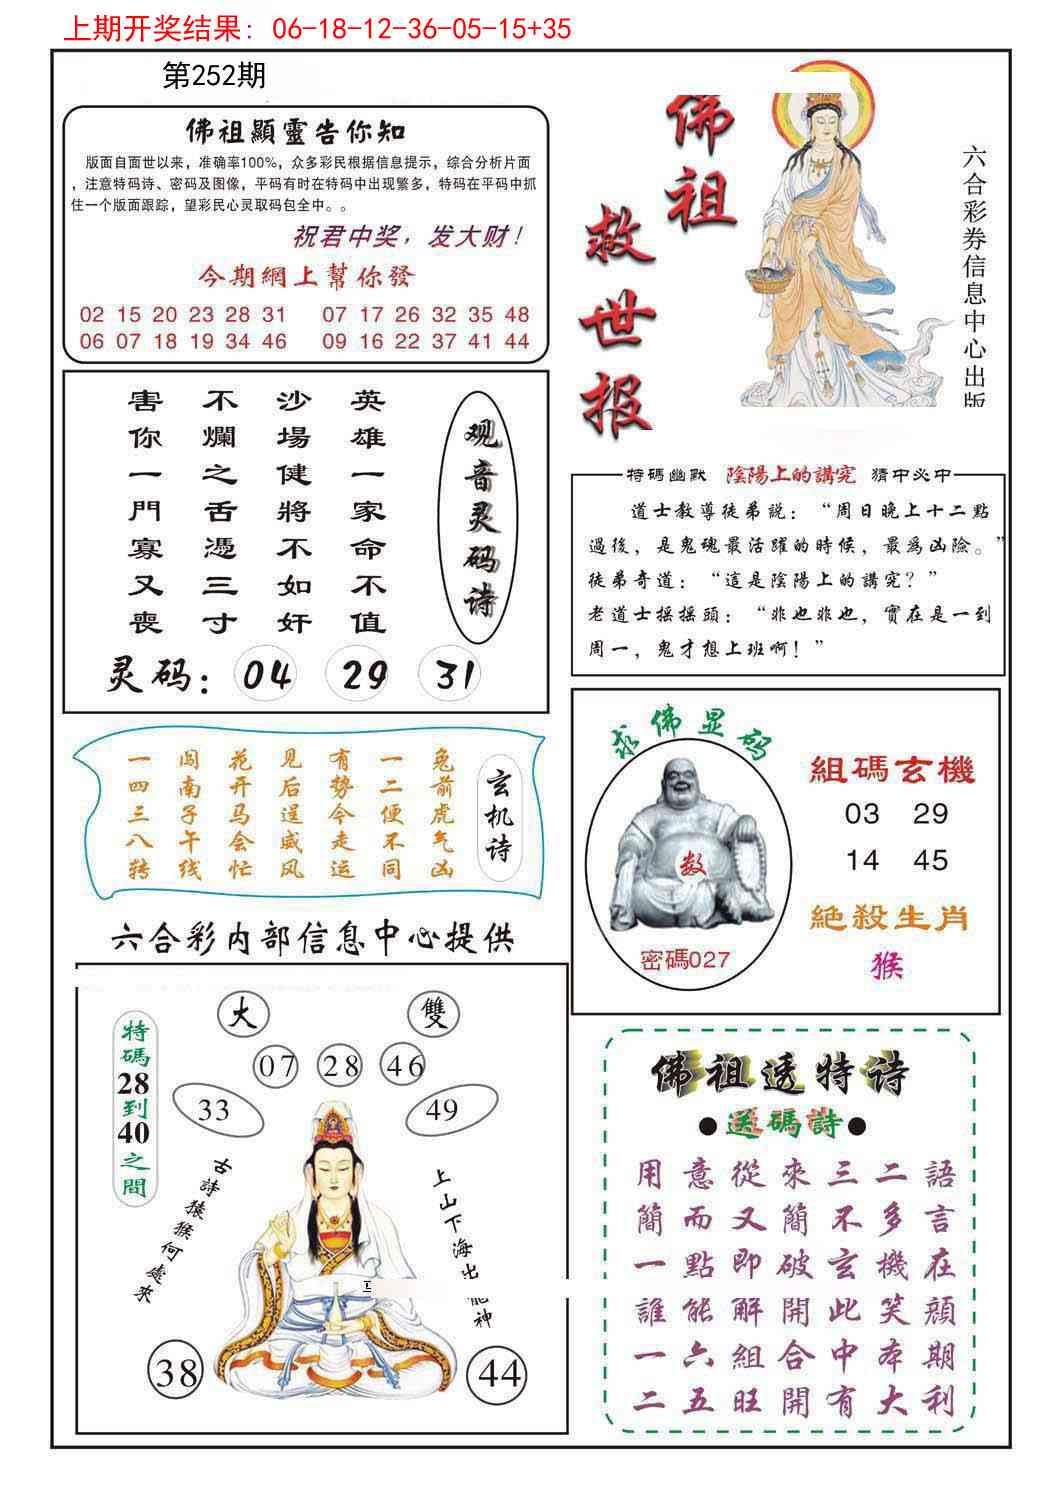 上期开奖结果: 06-18-12-36-05-15+35
第252期
佛祖顯靈告你知
版面自面世以来，准确率100%，众多彩民根据信息提示，综合分析片面
，注意特码诗、密码及图像，平码有时在特码中出现繁多，特码在平码中抓
住一个版面跟踪，望彩民心灵取码包全中。。
祝君中奖，发大财！
今期網上幫你發
02 15 20 23 28 31 07 17 26 32 35 48
06 07 18 19 34 46 09 16 22 37 41 44
佛祖
救世报
六合彩券信息中心出版
观音灵码诗
英雄一家命不值
沙場健將不如奸
不爛之舌憑三寸
害你一門寡又喪
灵码: 04 29 31
特碼幽默 陰陽上的講究 猜中必中
道士教導徒弟説：“周日晚上十二點
過後，是鬼魂最活躍的時候，最為凶險。”
徒弟奇道：“這是陰陽上的講究？”
老道士摇摇頭：“非也非也，實在是一到
周一，鬼才想上班啊！”
玄机诗
兔前虎气凶
一二便不同
有势今走运
见后逞威风
花开马会忙
闯南子午线
一四三八转
求佛显码
数
密碼027
組碼玄機
03 29
14 45
絕殺生肖
猴
六合彩内部信息中心提供
大 雙
07 28 46
33 49
特碼28到40之間
古詩猿猴何處來
上山下海出龍神
38 44
佛祖透特诗
●送碼詩●
用意從來三二語
簡而又簡不多言
一點即破玄機在
誰能解開此笑顔
一六組合中本期
二五旺開有大利